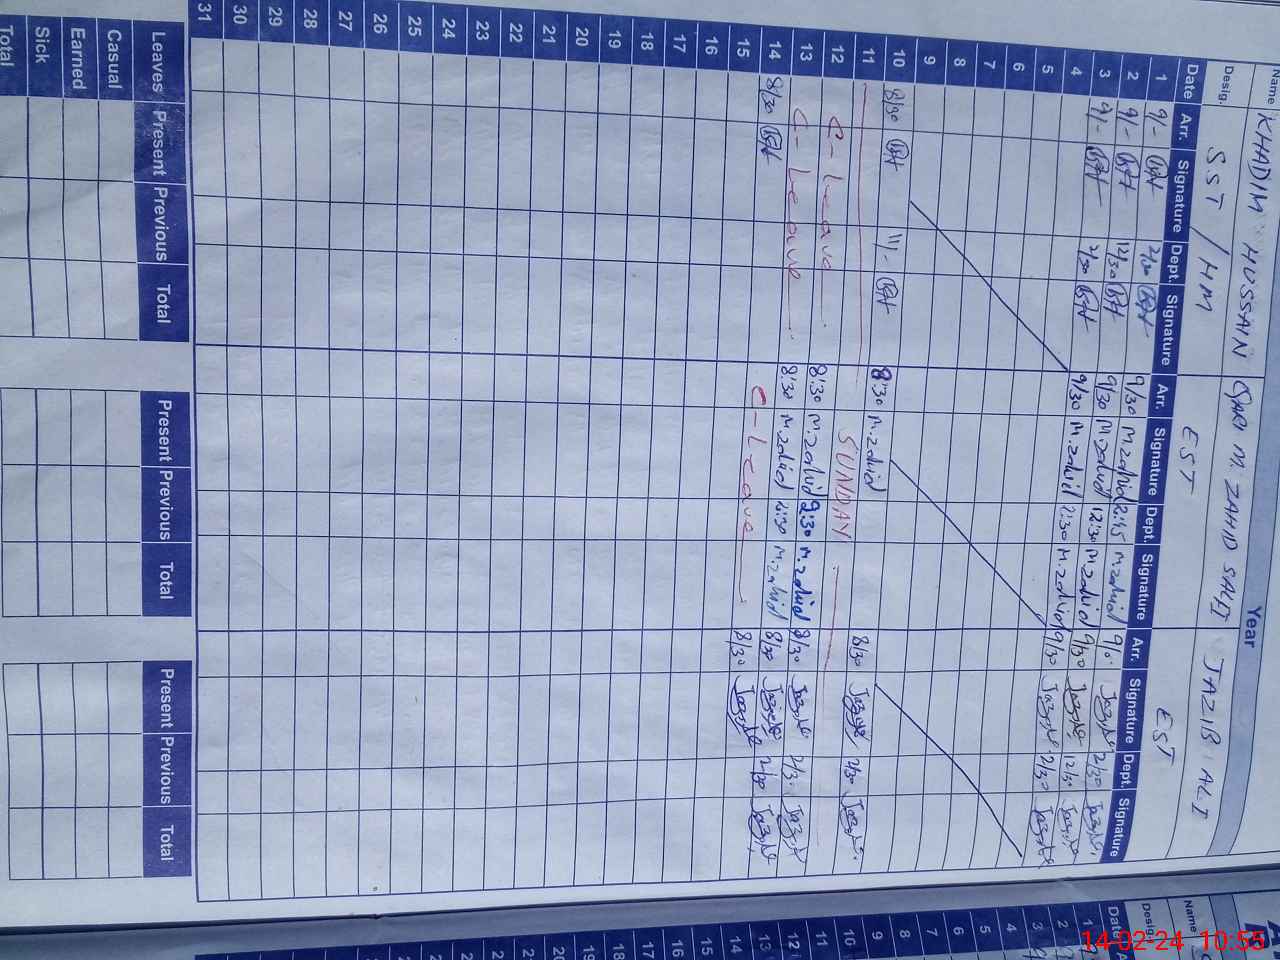 Year
Name KHADIM HUSSAIN QARI M. ZAHID SAEED JAZIB ALI
Desig. SST/HM EST EST
Date Arr. Signature Dept. Signature Arr. Signature Dept. Signature Arr. Signature Dept. Signature
1 9/- 2/30 9/30 M.Zahid 2:45 M.Zahid 9/0 2/30
2 9/- 12/30 9/30 M.Zahid 12:30 M.Zahid 9/30 12/30
3 9/- 2/30 9/30 M.Zahid 2:30 M.Zahid 9/30 2/30
4
5
6
7
8
9
10 8/30 11/- 8:30 M.Zahid 8/30 2/30
11 SUNDAY
12 C-Leave 8:30 M.Zahid 2:30 M.Zahid 8/30 2/30
13 C-Leave 8:30 M.Zahid 2:30 M.Zahid 8/30 2/30
14 8/30 C-Leave 8/30
15
16
17
18
19
20
21
22
23
24
25
26
27
28
29
30
31
Leaves Present Previous Total Present Previous Total Present Previous Total
Casual
Earned
Sick
Total
Name
Desig.
Date
1
2
3
4
5
6
7
8
9
10
11
12
13
14
15
16
17
18
19
20
14-02-24 10:55